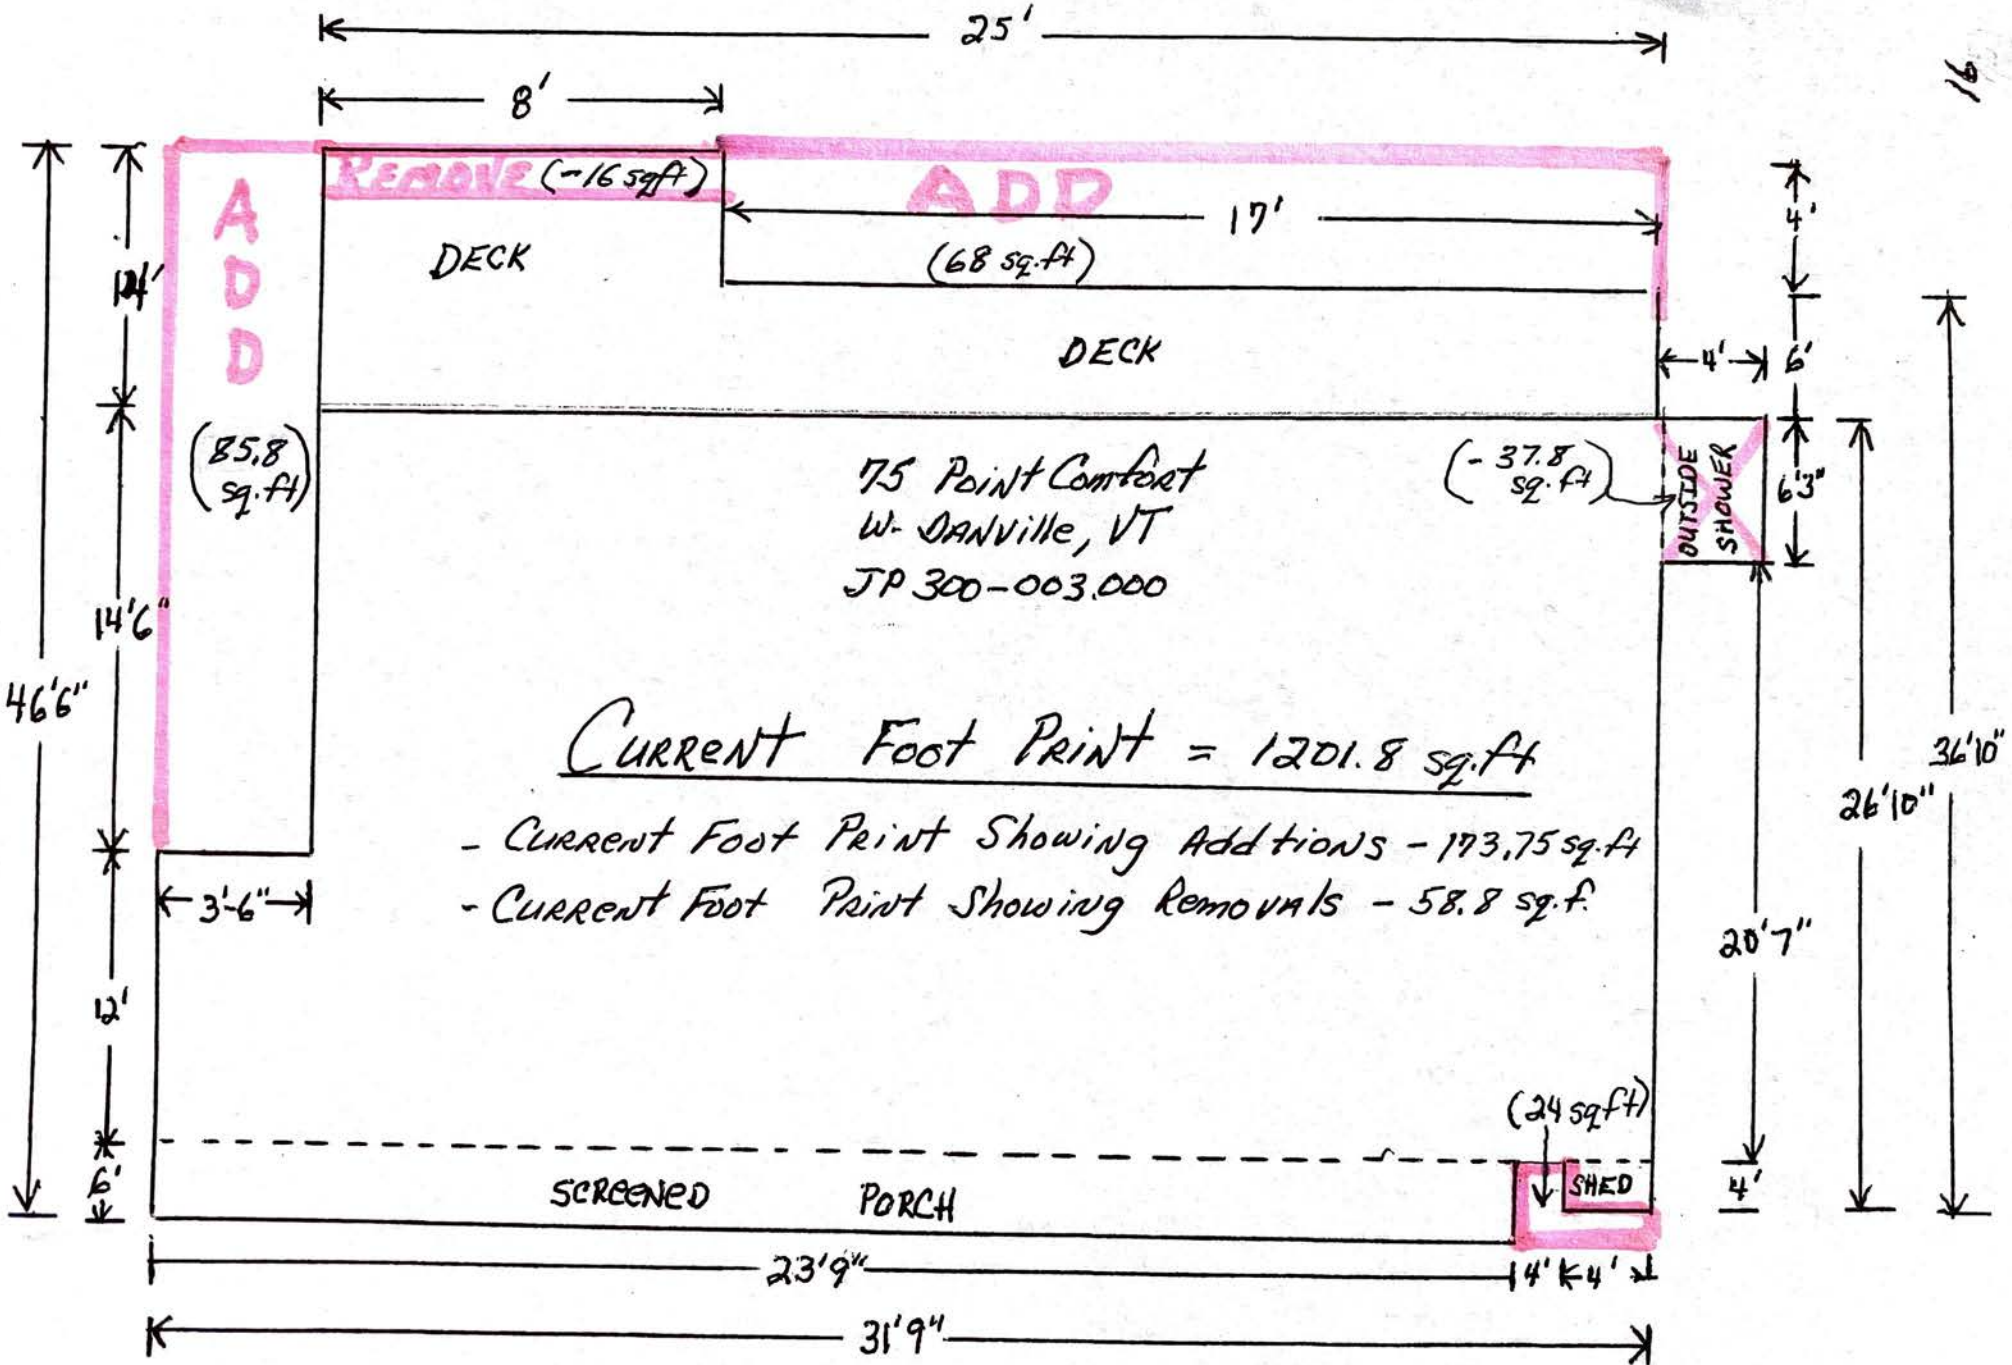 25'
16
8'
REMOVE (-16 sqft)
ADD
17'
4'
ADD
DECK
(68 sq.ft)
DECK
4'
6'
(85.8
sq.ft)
75 Point Comfort
W. DANville, VT
JP 300-003.000
(-37.8
sq.ft)
OUTSIDE
SHOWER
6'3"
14'6"
46'6"
CURRENT Foot PRINT = 1201.8 sq.ft
36'10"
26'10"
- CURRENT Foot PRINT Showing Addtions - 173.75 sq.ft
- CURRENT Foot PRINT Showing Removals - 58.8 sq.f.
3'-6"
20'7"
12'
(24 sqft)
6'
SCREENED PORCH
SHED
4'
23'9"
4' 4'
31'9"